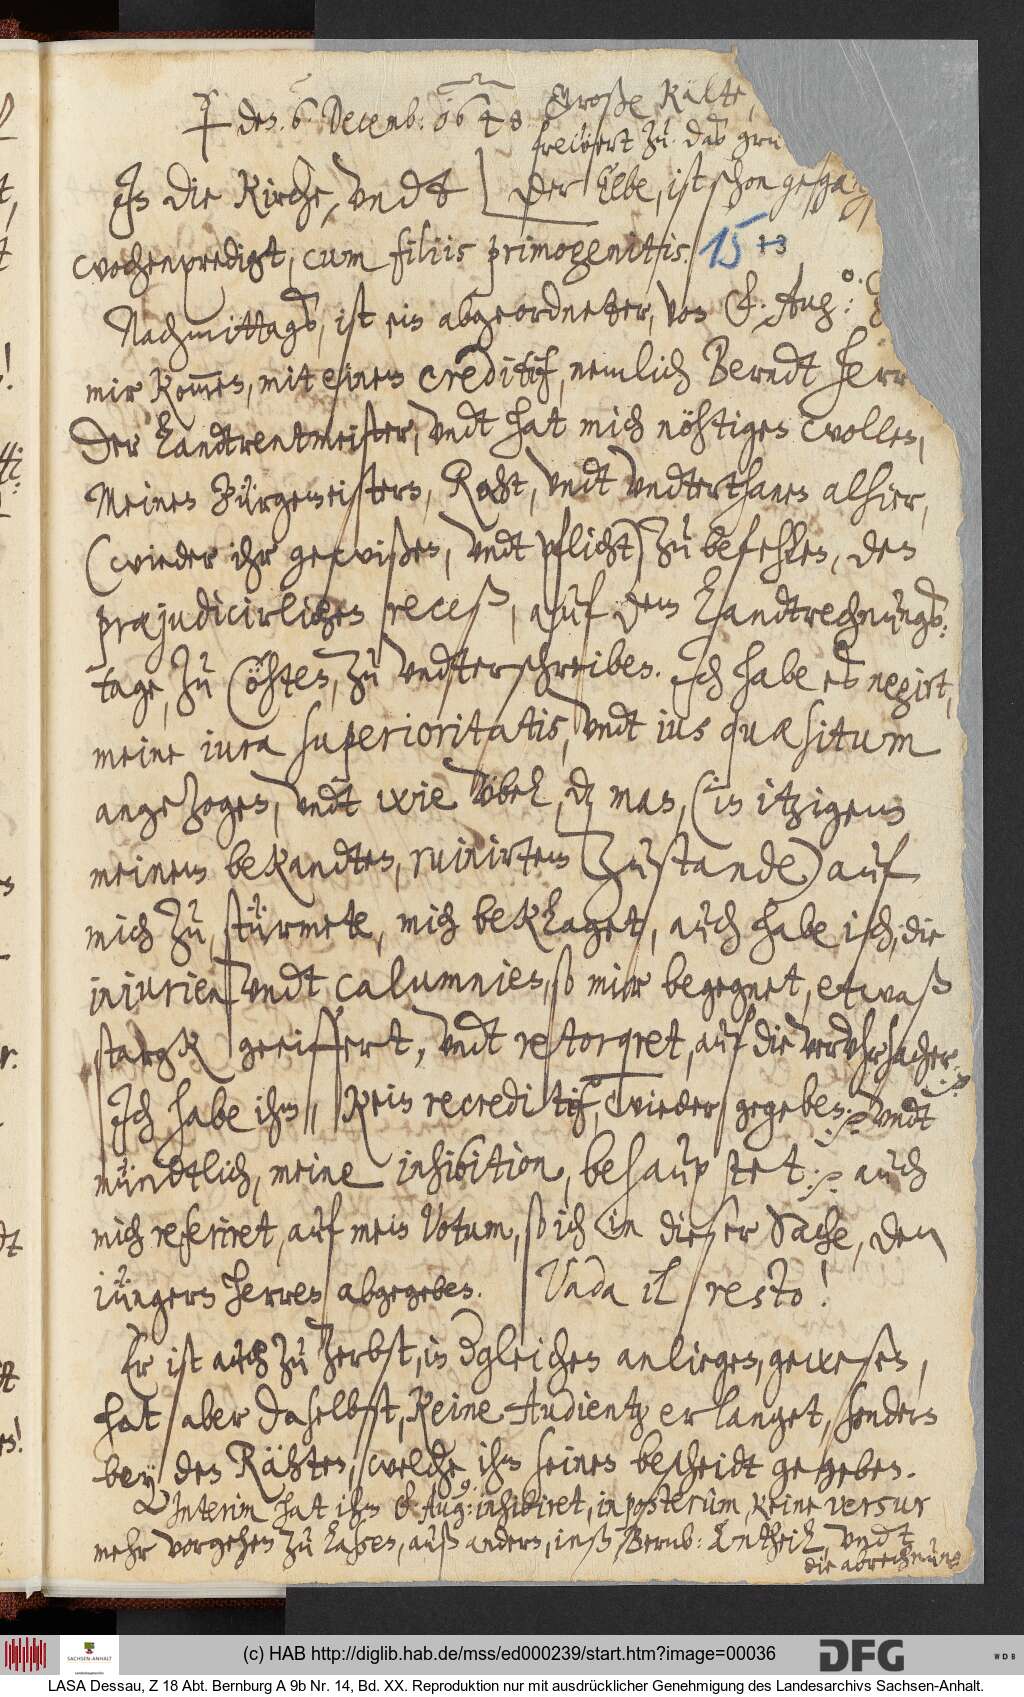 den. 6. Decemb: 1648
Große Kälte,
freüsert zu. daß gru
der Elbe, ist schon gesta
In die Kirche, vndt
wochenpredigt, cum filiis primogenitis. 15
Nachmittags, ist ein abgeordneter, von F. Aug:
mir kommen, mit einem creditif, nemlich Berndt Herr
der Landtrentmeister, vndt hat mich nöhtigen wollen,
Meinen Bürgemeistern, Raht, vndt vndterthanen alhier,
(wieder ihr gewißen, vndt pflicht) zu befehlen, den
præjudicirlichen receß, auf dem Landtrechnungs:
tage, zu Cöhten, zu vndterschreiben. Jch habe es negirt,
meine iura superioritatis, vndt ius quæsitum
angezogen, vndt wie vbel, dz man, (in itzigem
meinem bekandten, ruinirtem Zustande) auf
mich zu, stürmete, mich beklaget, auch habe ich, die
injurien vndt calumnien, so mir begegnet, etwaß
stargk geeiffert, vndt retorqret, auf die vervhrsacher
Jch habe ihm, kein recreditif, wieder gegeben: vndt
mündtlich, meine inhibition, behauptet: auch
mich referiret, auf mein Votum, so ich in dieser Sache, dem
iüngern Herren abgegeben. Vada il resto!
Er ist auch zu Zerbst, in dgleichen anliegen, gewesen,
hat aber daselbst, keine Audientz erlanget, sondern
bey den Rähten, welche ihm seinen bescheidt gegeben.
Interim hat ihm F. Aug: inhibiret, in posterum, keine versur
mehr vorgehen zu laßen, auß andern, inß, Bernb: Antheil, vndt
die abrechnung
(c) HAB http://diglib.hab.de/mss/ed000239/start.htm?image=00036
SACHSEN-ANHALT
DFG
WDB
LASA Dessau, Z 18 Abt. Bernburg A 9b Nr. 14, Bd. XX. Reproduktion nur mit ausdrücklicher Genehmigung des Landesarchivs Sachsen-Anhalt.